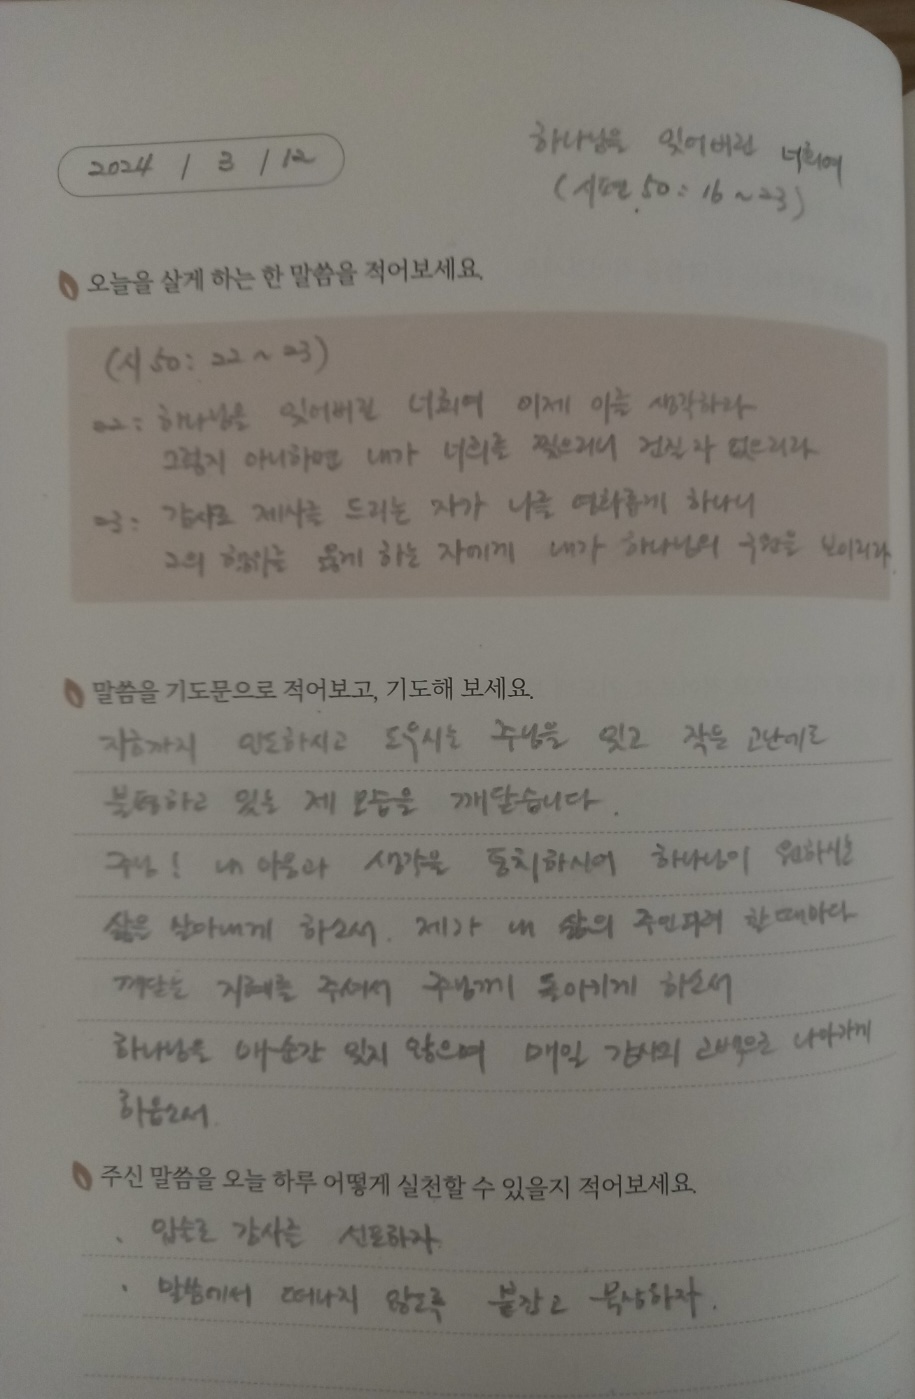 2024 / 3 / 12
하나님을 잊어버린 너희여
(시편 50: 16~23)
오늘을 살게 하는 한 말씀을 적어보세요.
(시 50: 22~23)
22: 하나님을 잊어버린 너희여 이제 이를 생각하라
그렇지 아니하면 내가 너희를 찢으리니 건질 자 없으리라
23: 감사로 제사를 드리는 자가 나를 영화롭게 하나니
그의 행위를 옳게 하는 자에게 내가 하나님의 구원을 보이리라.
말씀을 기도문으로 적어보고, 기도해 보세요.
지금까지 인도하시고 도우시는 주님을 잊고 작은 고난에도
불평하고 있는 제 모습을 깨닫습니다.
주님! 내 마음과 생각을 통치하시어 하나님이 원하시는
삶을 살아내게 하소서. 제가 내 삶의 주인되려 할 때마다
깨닫는 지혜를 주셔서 주님께 돌아키게 하소서
하나님을 매순간 잊지 않으며 매일 감사의 고백으로 나아가게
하옵소서.
주신 말씀을 오늘 하루 어떻게 실천할 수 있을지 적어보세요.
. 입술로 감사를 선포하자
. 말씀에서 떠나지 않도록 붙잡고 묵상하자.